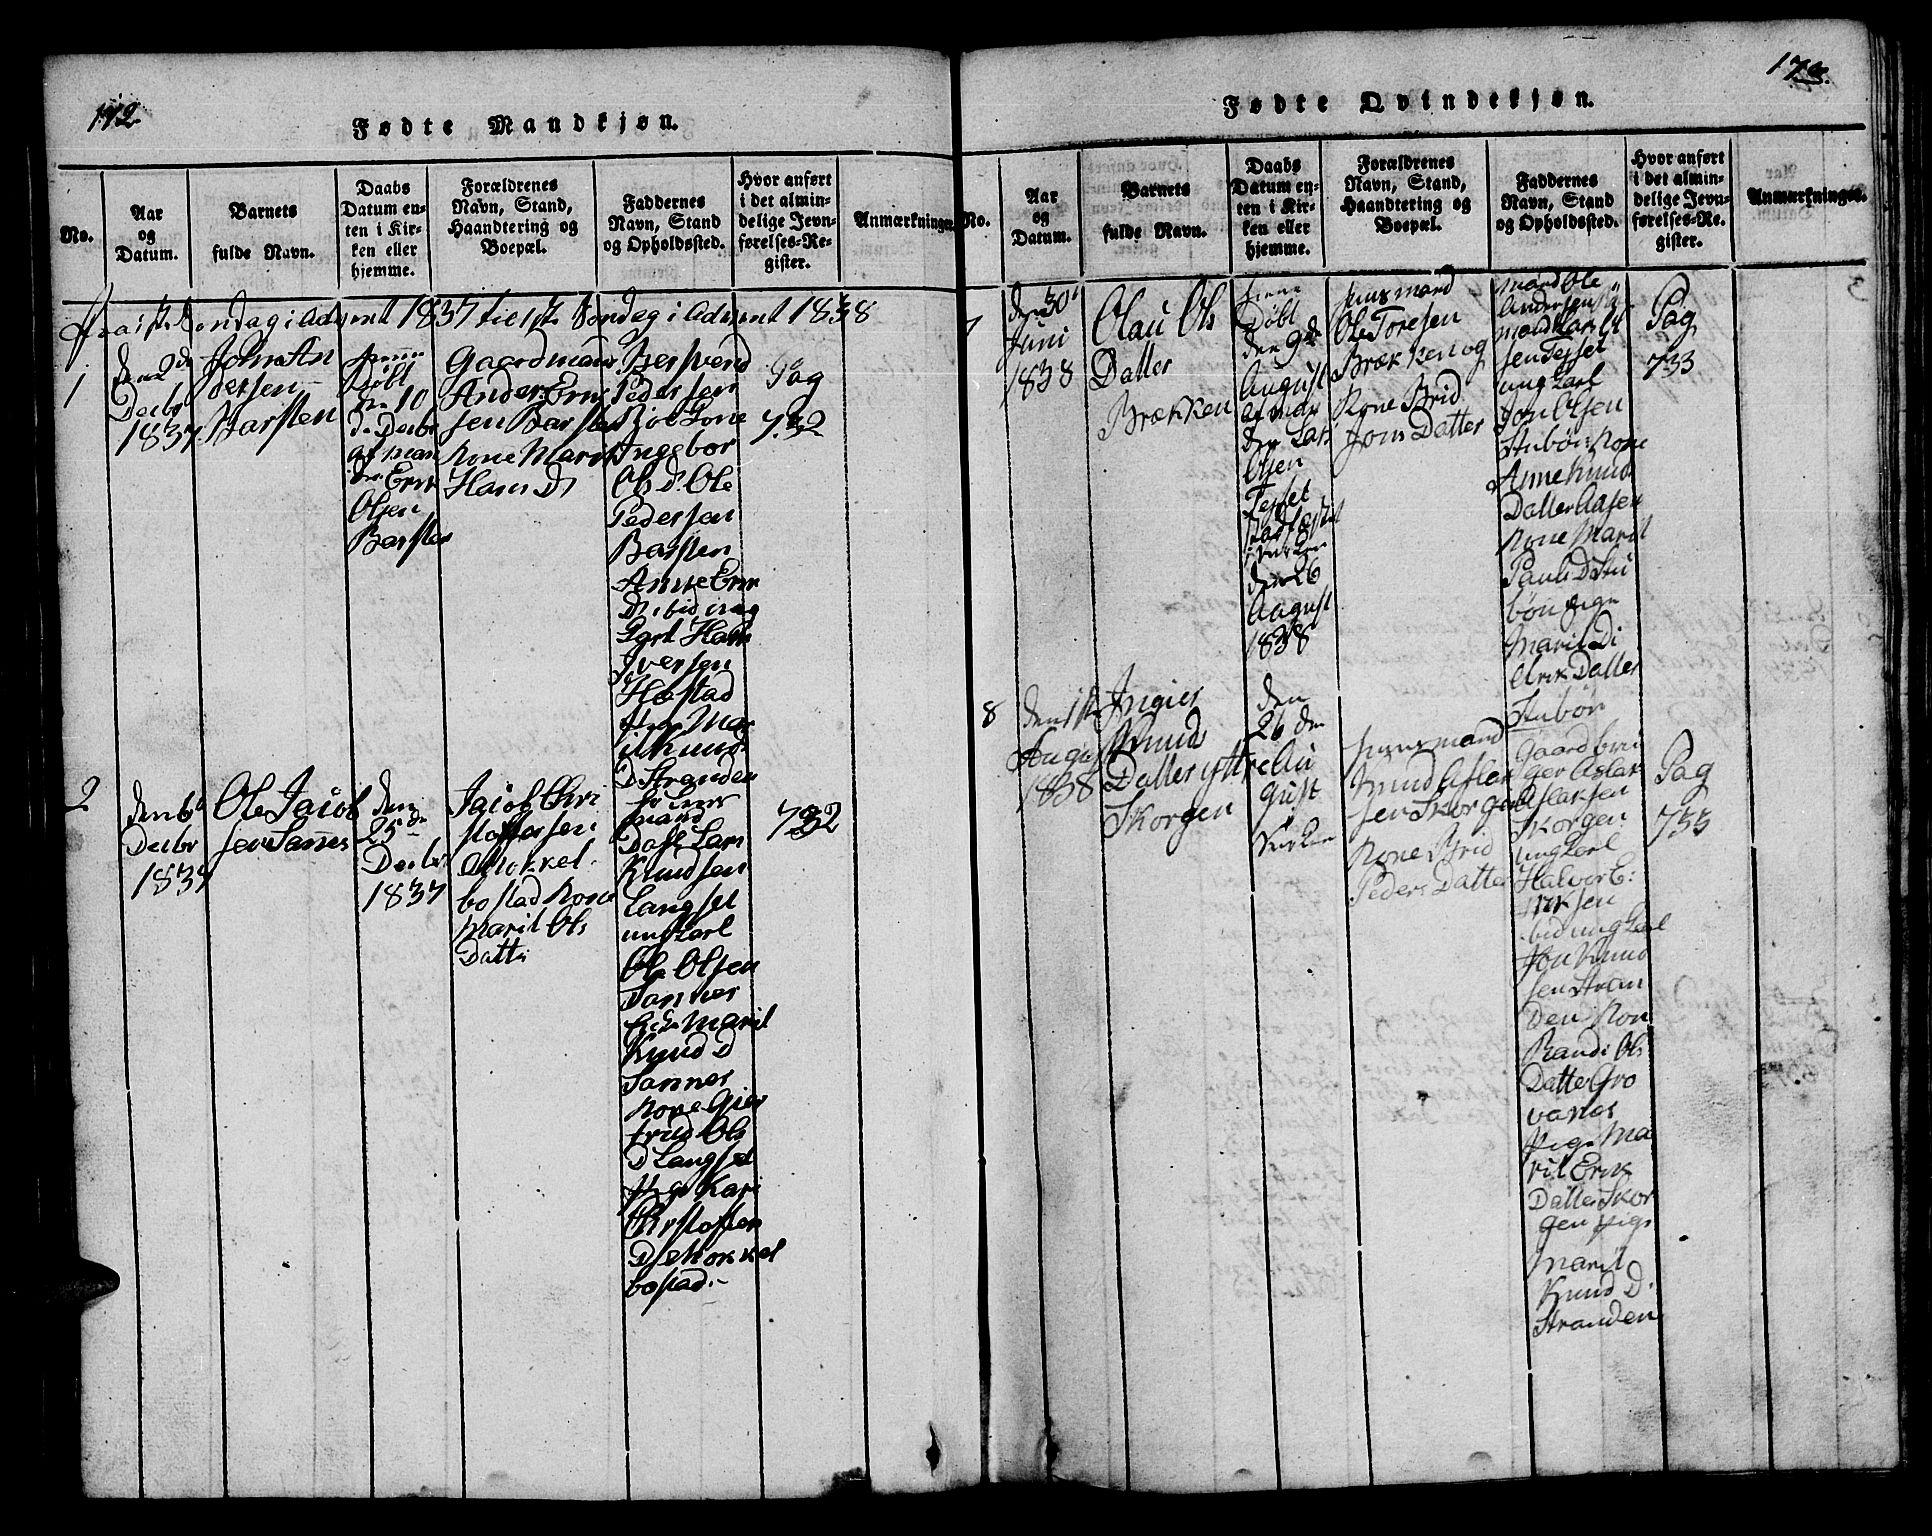 172.
Fødte Mandkjøn.
No.
Aar
og
Datum.
Barnets
fulde Navn.
Daabs
Datum en-
ten i Kir-
ken eller
hjemme.
Forældrenes
Navn, Stand,
Haandtering og
Boepæl.
Faddernes
Navn, Stand
og Opholdssted.
Hvor anført
i det almin-
delige Jevn-
førelses-Re-
gister.
Anmærkninger.
fra 1ste Søndag i Advent 1837 til 1ste Søndag i Advent 1838
1
den 2de
Decbr
1837
John An
dersen
Barsten
hieme
Døbt
den 10
de Decbr
af man
den Erik
Olsen
Barsten
Gaardmand
Anders Erik
sen Barsten
Kone Marit
Hans D
Pedersen
Kone
Ingebor
Ols D. Ole
Pedersen
Barsten
Anne Erik
D.
Hans
Iversen
Hostad
Mar
it Knuds
D Stranden
Pag
732
2
den 6te
Decbr
1837
Ole Jacob
sen Sannes
den
25de
Decbr
1837
Jacob Chri
stoffersen
Mokkel
bostad Kone
Marit Ols
Datter
mand
Lars
Knudsen
Langset
ungkarl
Ole Olsen
Sannes
Marit
Knud D
Sannes
Kone Gier
trud Ols
D Langset
Pige Kari
Christoffer
D Mokkel
bostad.
732
173.
Fødte Qvindekjøn.
No.
Aar
og
Datum.
Barnets
fulde Navn.
Daabs
Datum en-
ten i Kir-
ken eller
hjemme.
Forældrenes
Navn, Stand,
Haandtering og
Boepæl.
Faddernes
Navn, Stand
og Opholdssted.
Hvor anført
i det almin-
delige Jevn-
førelses-Re-
gister.
Anmærkninger.
7
den 30te
Juni
1838
Olau Ols
Datter
Brækken
hieme
Døbt
den 9de
August
af man
den Lars
Olsen
Tesset
Stadfæstet
i Kirken
den 26
August
1838
Huusmand
Ole Toresen
Brækken og
Kone Brid
Jons Datter
mand Ole
Andersen
mand Lars Ol
sen Tesset
ungkarl
Jon Olsen
Stubøe Kone
Anne Knuds
Datter Aasen
Kone Marit
Pauls D Stu
bøn pige
Marit
Erik Datter
Stubøn
Pag
733
8
den 1ste
August
1838
Ingier
Knuds
Datter ytre
Skorgen
den
26 den
Au
gust
Kirken
Huusmand
Knud Aslak
sen Skorgen
Kone Brid
Peders Datter
Gaardbru
ger Aslak
Aslaksen
Skorgen
ungkarl
Halvor E:
riksen
ibid ungkarl
Jon Knud
sen Stran
den Kon
Randi Ols
Datter Gro
vanes
Pige Ma
rit Erik
Datter Skor
gen pige
Marit
Knud D.
Stranden
Pag
733